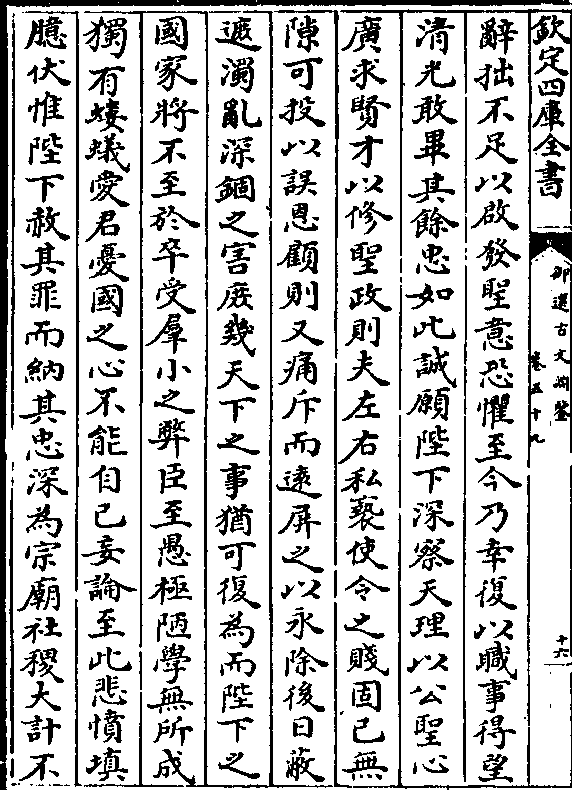 欽定四庫全書
御選古文淵鑒
卷五十九
十六
辭拙不足以啟發聖意恐懼至今乃幸復以職事得望
清光敢畢其餘忠如此誠願陛下深察天理以公聖心
廣求賢才以修聖政則夫左右私褻使令之賤固已無
隙可投以誤恩顧則又痛斥而遠屏之以永除後日蔽
遮濁亂深錮之害庶幾天下之事猶可復為而陛下之
國家將不至於卒受羣小之弊臣至愚極陋學無所成
獨有螻蟻愛君憂國之心不能自已妄論至此悲憤填
臆伏惟陛下赦其罪而納其忠深為宗廟社稷大計不